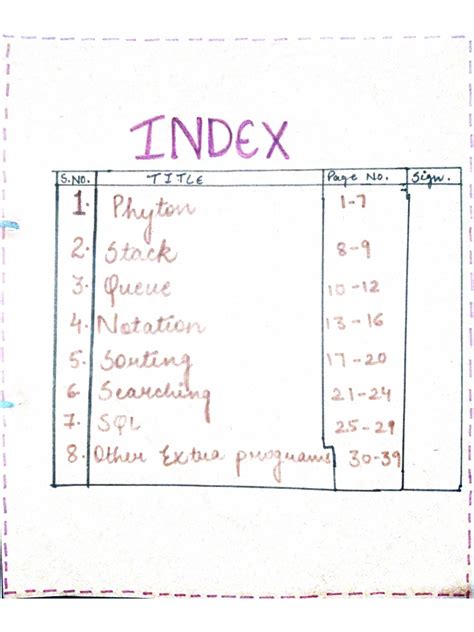 INDEX
S.NO. TITLE Page No. Sign.
1. Phyton 1-7
2. Stack 8-9
3. Queue 10-12
4. Notation 13-16
5. Sorting 17-20
6. Searching 21-24
7. SQL 25-29
8. Other Extra programs 30-39